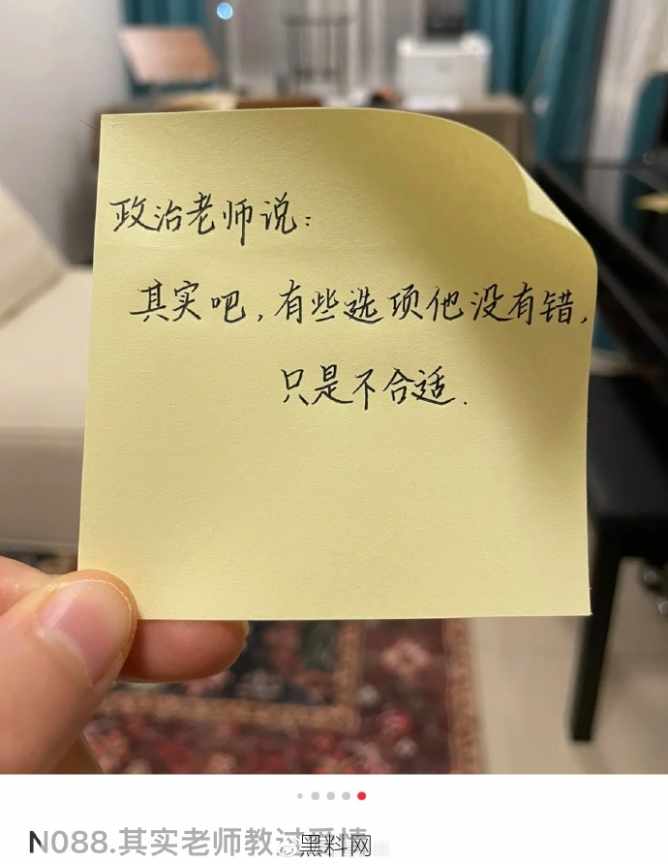 政治老师说:
其实吧,有些选项他没有错,
只是不合适.
N088.其实老师教过爱情
黑料网